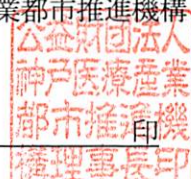 業都市推進機構
公益財団法人
神戸医療産業
都市推進機
構理事長印
印